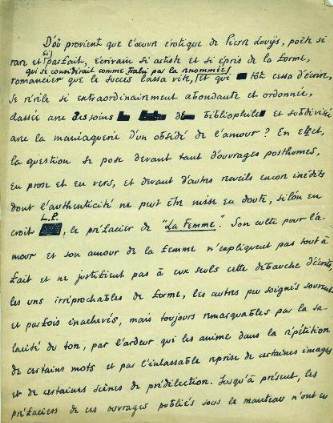 D'où provient que l'œuvre érotique de Pierre Louÿs, poète si
rare et si parfait, écrivain si artiste et si épris de la forme,
qui se considérait comme trahi par la renommée
romancier que le succès lassa vite, et qui tôt cessa d'écrire,
se révèle si extraordinairement abondante et ordonnée,
classée avec des soins de bibliophile et solidifié
avec la maniaquerie d'un obsédé de l'amour ? En effet,
la question se pose devant tant d'ouvrages posthumes,
en prose et en vers, et devant d'autres recueils encor inédits
dont l'authenticité ne peut être mise en doute, si l'on en
L.P.
croit, le préfacier de "La Femme". Son culte pour l'a-
mour et son amour de la femme n'expliquent pas tout à
fait et ne justifient pas à eux seuls cette débauche d'écrits,
les uns irréprochables de forme, les autres peu soignés souvent
et parfois inachevés, mais toujours remarquables par la sa-
lacité du ton, par l'ardeur qui les anime dans la répétition
de certains mots et par l'inlassable reprise de certaines images
et de certaines scènes de prédilection. Jusqu'à présent, les
préfaciers de ces ouvrages publiés sous le manteau n'ont vu